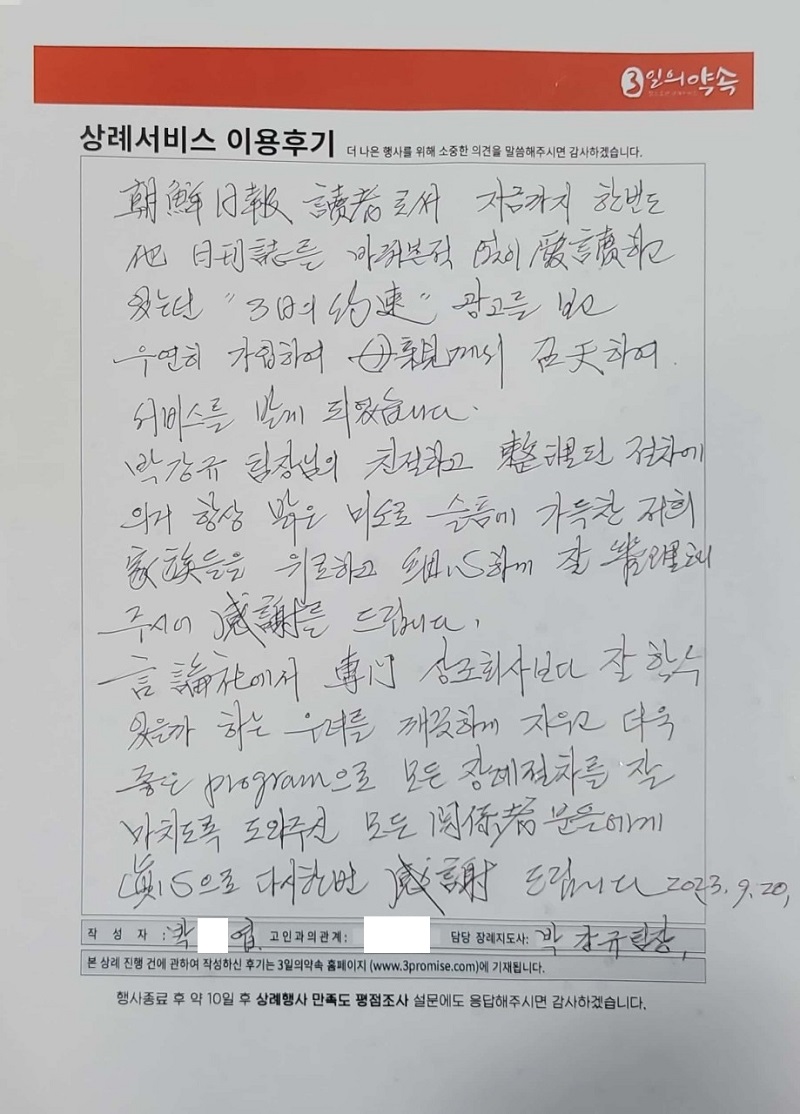 3일의약속
상례서비스 이용후기 더 나은 행사를 위해 소중한 의견을 말씀해주시면 감사하겠습니다.
朝鮮日報 讀者로써 지금까지 한번도
他 日刊誌를 바꿔본적 없이 愛讀하고
있는단 "3日의 約速" 광고를 보고
우연히 가입하여 母親께서 召天하여
서비스를 받게 되었습니다.
박강규 팀장님의 친절하고 整理된 절차에
의거 항상 밝은 미소로 슬픔에 가득찬 저희
家族들을 위로하고 細心하게 잘 管理해
주시어 感謝를 드립니다.
言論社에서 專門 상조회사보다 잘 할수
있을까 하는 우려를 깨끗하게 지우고 더욱
좋은 program으로 모든 장례절차를 잘
마치도록 도와주신 모든 関係者분들에게
眞心으로 다시한번 感謝 드립니다 2023.9.20,
작 성 자 : 박 엽 고인과의관계: 담당 장례지도사: 박강규팀장,
본 상례 진행 건에 관하여 작성하신 후기는 3일의약속 홈페이지 (www.3promise.com)에 기재됩니다.
행사종료 후 약 10일 후 상례행사 만족도 평점조사 설문에도 응답해주시면 감사하겠습니다.